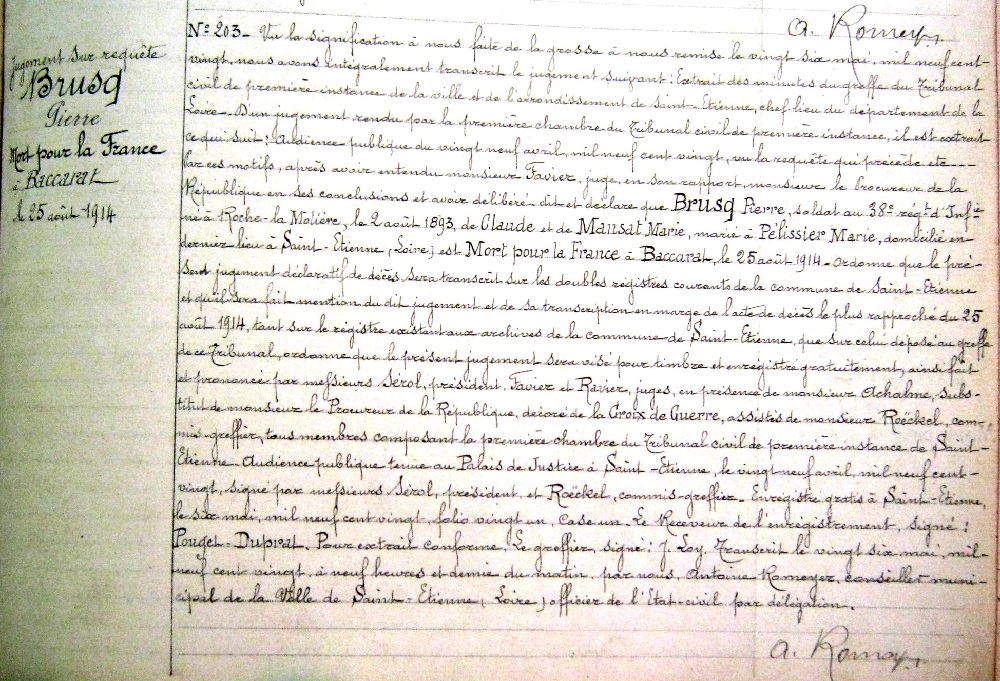 A. Romeyer
Jugement sur requête
Brusq
Pierre
Mort pour la France
à Baccarat
le 25 août 1914
N° 203 - Vu la signification à nous faite de la grosse à nous remise le vingt six mai, mil neuf cent-
vingt, nous avons intégralement transcrit le jugement suivant: Extrait des minutes du greffe du Tribunal
civil de première instance de la ville et de l'arrondissement de Saint-Etienne, chef-lieu du département de la
Loire - D'un jugement rendu par la première chambre du Tribunal civil de première instance, il est extrait
ce qui suit: Audience publique du vingt neuf avril, mil neuf cent vingt, vu la requête qui précède etc ----
Par ces motifs, après avoir entendu monsieur Favier, juge, en son rapport, monsieur le Procureur de la
République en ses conclusions et avoir délibéré - dit et déclare que Brusq Pierre, soldat au 38e régt d'Infie
né à Roche-la Molière, le 2 août 1893, de Claude et de Mansat Marie, marié à Pélissier Marie, domicilié en
dernier lieu à Saint-Etienne, (Loire) est Mort pour la France à Baccarat, le 25 août 1914 - Ordonne que le pré-
sent jugement déclaratif de décès, sera transcrit sur les doubles registres courants de la commune de Saint-Etienne
et qu'il sera fait mention du dit jugement et de sa transcription en marge de l'acte de décès le plus rapproché du 25
août 1914, tant sur le régistre existant aux archives de la commune de Saint-Etienne, que sur celui déposé au greffe
de ce Tribunal, ordonne que le présent jugement sera visé pour timbre et enregistré gratuitement, ainsi fait
et prononcé par messieurs Sérol, président, Favier et Ravier, juges, en présence de monsieur Achalme, subs-
titut de monsieur le Procureur de la République, décoré de la Croix de Guerre, assistés de monsieur Roëckel, com-
mis-greffier, tous membres composant la première chambre du Tribunal civil de première instance de Saint-
Etienne. Audience publique tenue au Palais de Justice à Saint-Etienne, le vingt neuf avril, mil neuf cent-
vingt, signé par messieurs Sérol, président, et Roëckel, commis-greffier. Enregistré gratis à Saint-Etienne,
le six mai, mil neuf cent vingt, folio vingt un, case un. Le Receveur de l'enregistrement, signé:
Pouget-Duprat. Pour extrait conforme, Le greffier, signé: J. Loy. Transcrit le vingt six mai, mil-
neuf cent vingt, à neuf heures et demie du matin, par nous, Antoine Romeyer, conseiller muni-
cipal de la Ville de Saint-Etienne, (Loire) officier de l'Etat-civil par délégation.
A. Romeyer